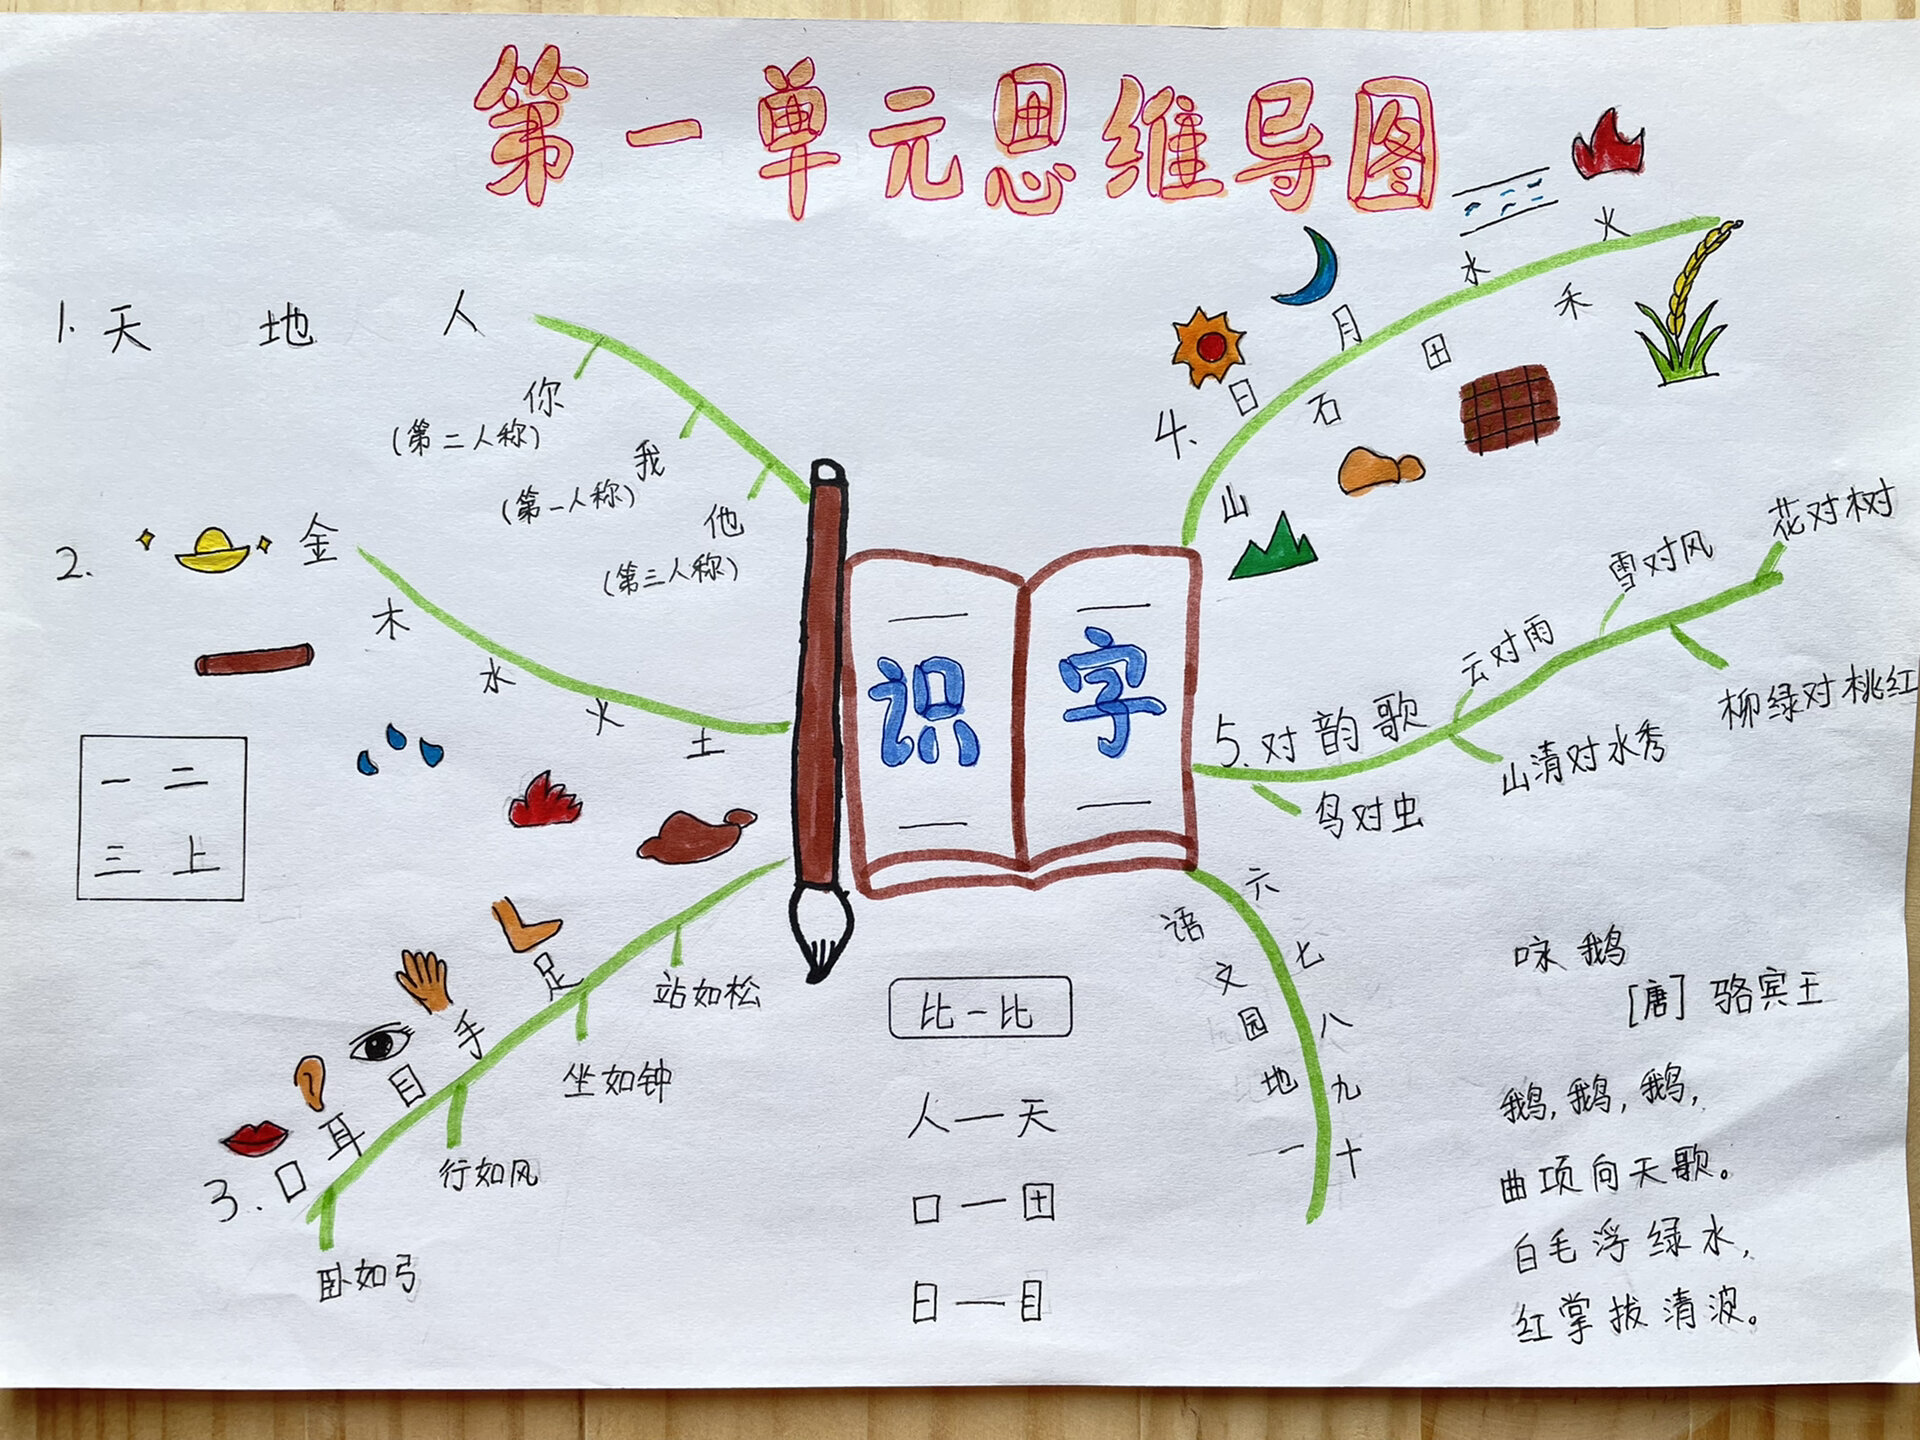 第一单元思维导图
1. 天 地 人
你
(第二人称)
我
(第一人称)
他
(第三人称)
2. 金
木
水
火
土
一 二
三 上
3. 口 耳 目 手 足
站如松
坐如钟
行如风
卧如弓
识字
4.
山 日 月 水 火
石 田 禾
5. 对韵歌
云对雨
雪对风
花对树
柳绿对桃红
山清对水秀
鸟对虫
语文园地一
六
七
八
九
十
比一比
人—天
口—田
日—目
咏鹅
[唐] 骆宾王
鹅,鹅,鹅,
曲项向天歌。
白毛浮绿水,
红掌拔清波。